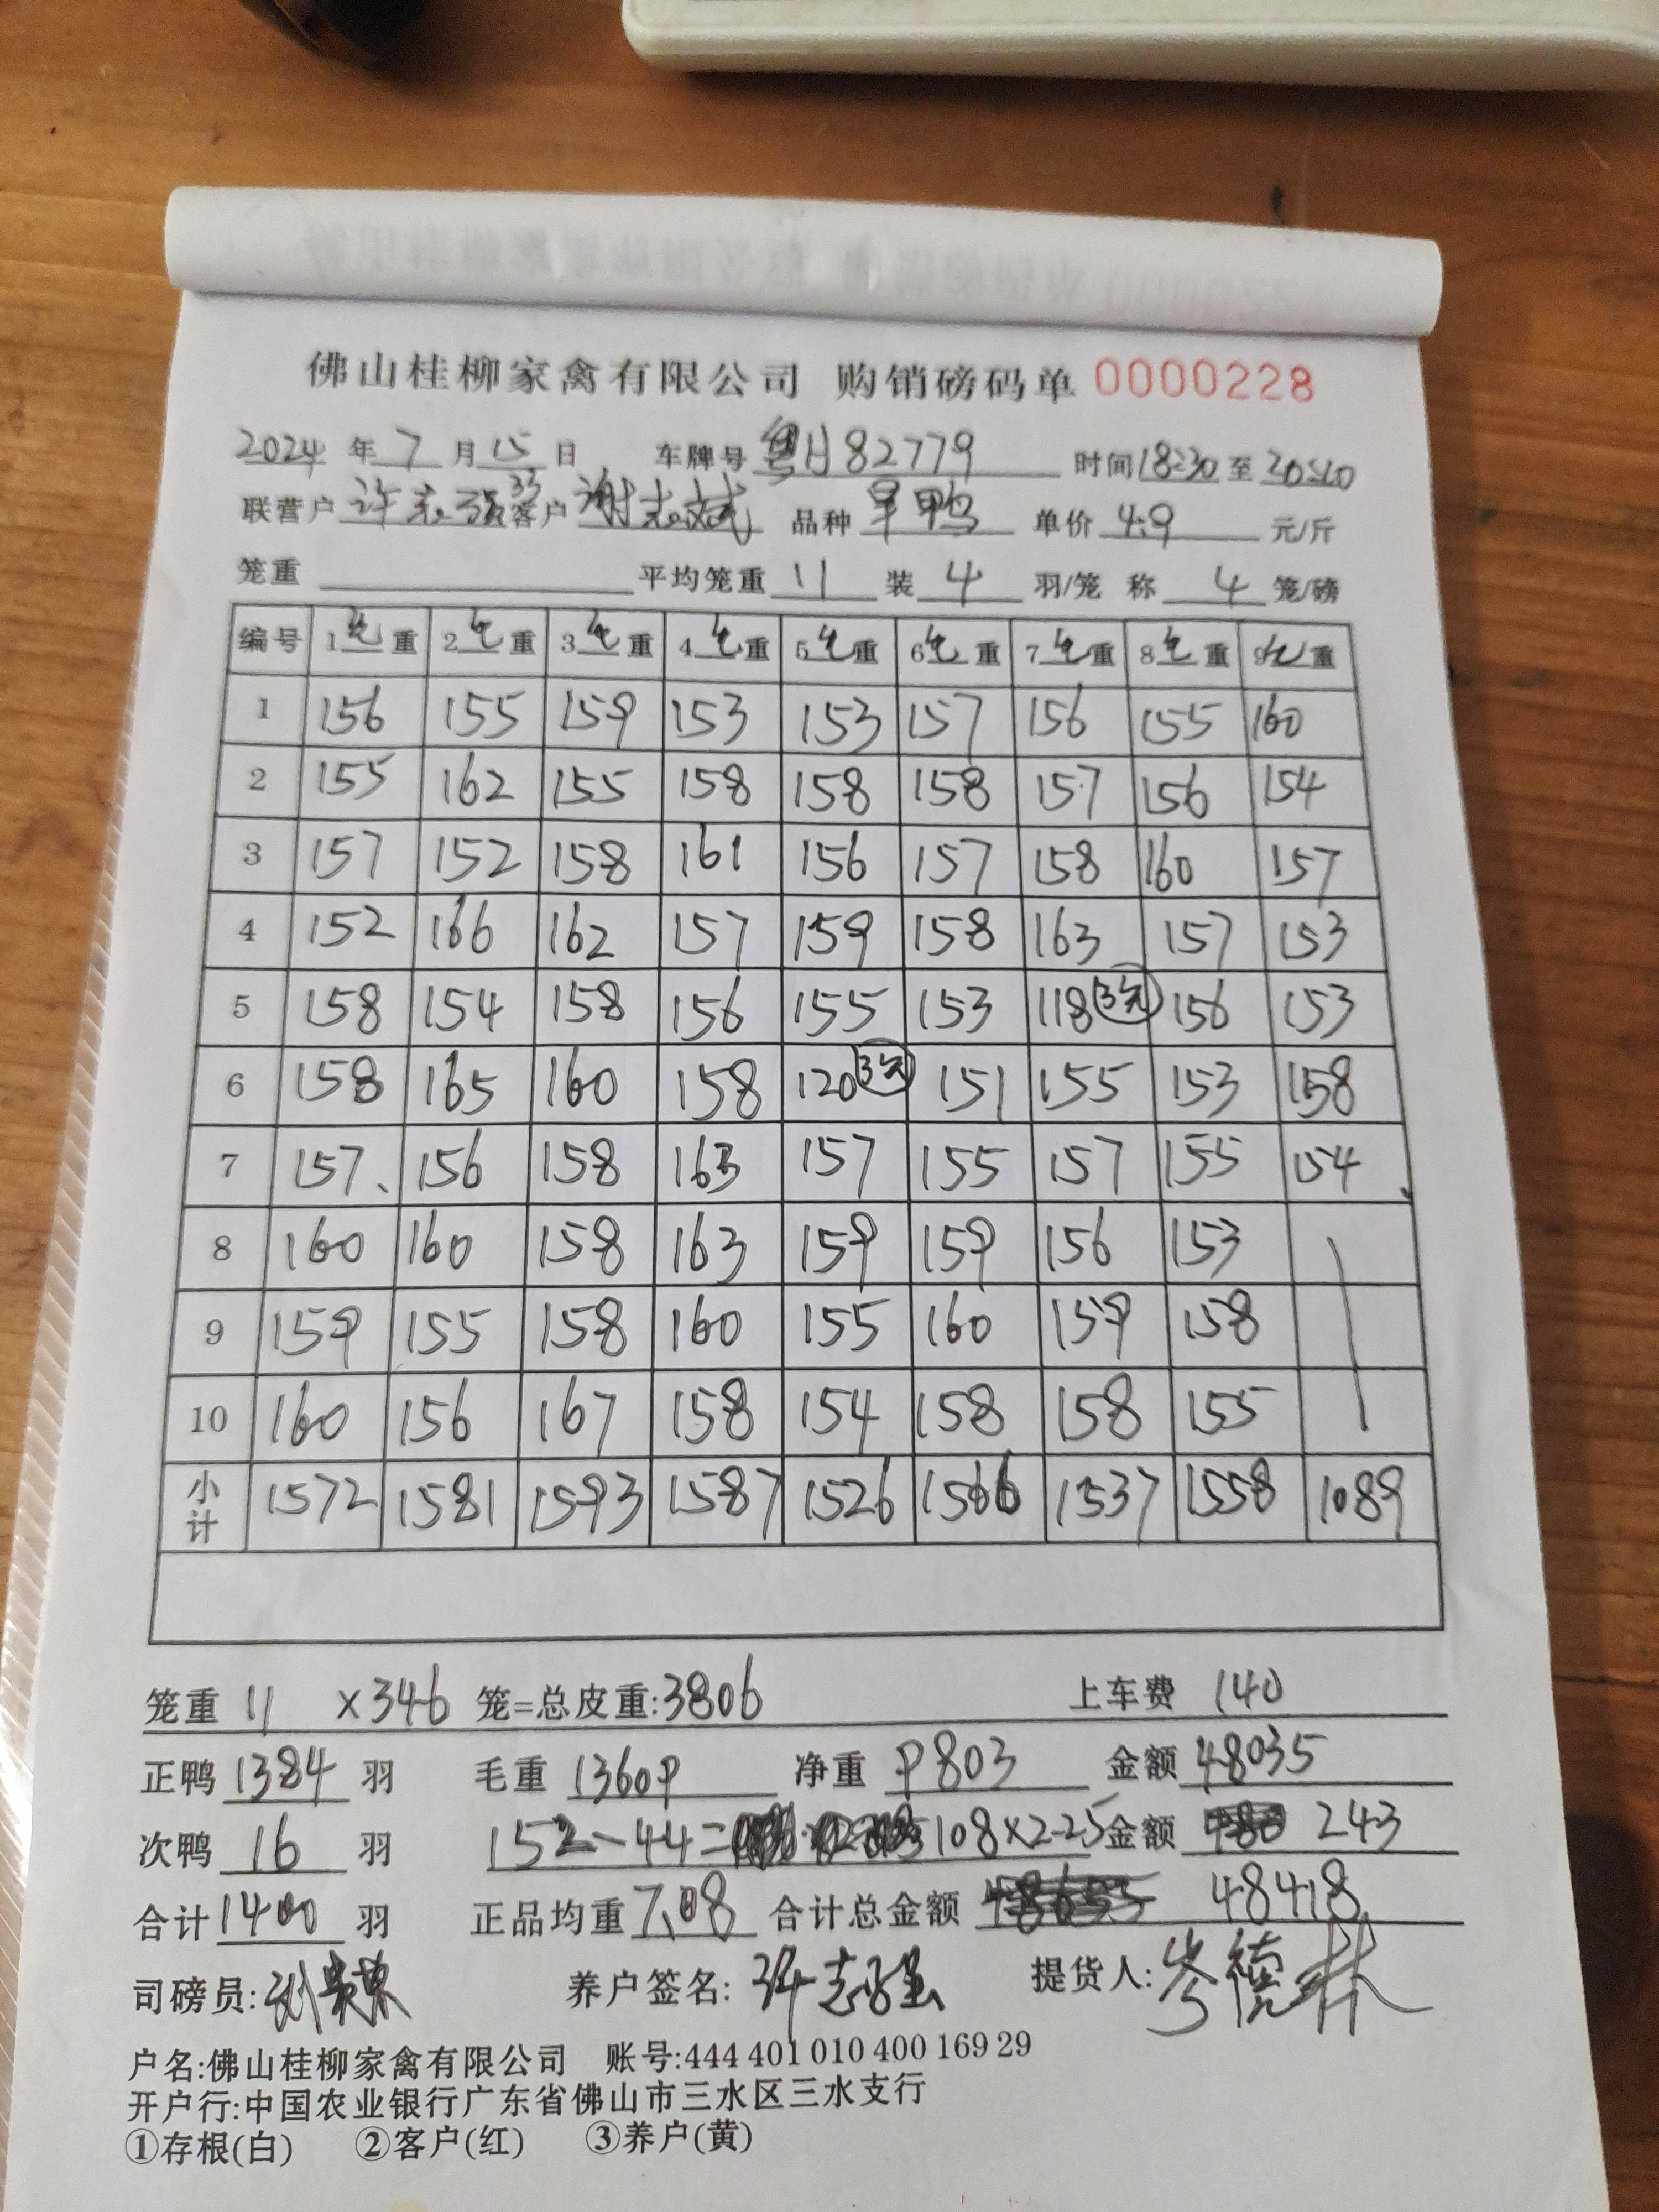 佛山桂柳家禽有限公司 购销磅码单 0000228
2024 年 7 月 15 日 车牌号 粤H82779 时间 18:30 至 20:40
联营户 许志强 33 客户 谢志斌 品种 旱鸭 单价 4.9 元/斤
笼重 平均笼重 11 装 4 羽/笼 称 4 笼/磅
编号 1 毛 重 2 毛 重 3 毛 重 4 毛 重 5 毛 重 6 毛 重 7 毛 重 8 毛 重 9 毛 重
1 156 155 159 153 153 157 156 155 160
2 155 162 155 158 158 158 157 156 154
3 157 152 158 161 156 157 158 160 157
4 152 166 162 157 159 158 163 157 153
5 158 154 158 156 155 153 118 156 153
6 158 165 160 158 120 151 155 153 158
7 157、 156 158 163 157 155 157 155 154
8 160 160 158 163 159 159 156 153
9 159 155 158 160 155 160 159 158
10 160 156 167 158 154 158 158 155
小计 1572 1581 1593 1587 1526 1566 1537 1558 1089
笼重 11 ×346 笼=总皮重:3806 上车费 140
正鸭 1384 羽 毛重 13609 净重 9803 金额 48035
次鸭 16 羽 152-44= 108×2.25 金额 243
合计 1400 羽 正品均重 7.08 合计总金额 48418
司磅员: 养户签名: 许志强 提货人: 岑德林
户名:佛山桂柳家禽有限公司 账号:444 401 010 400 169 29
开户行:中国农业银行广东省佛山市三水区三水支行
①存根(白) ②客户(红) ③养户(黄)